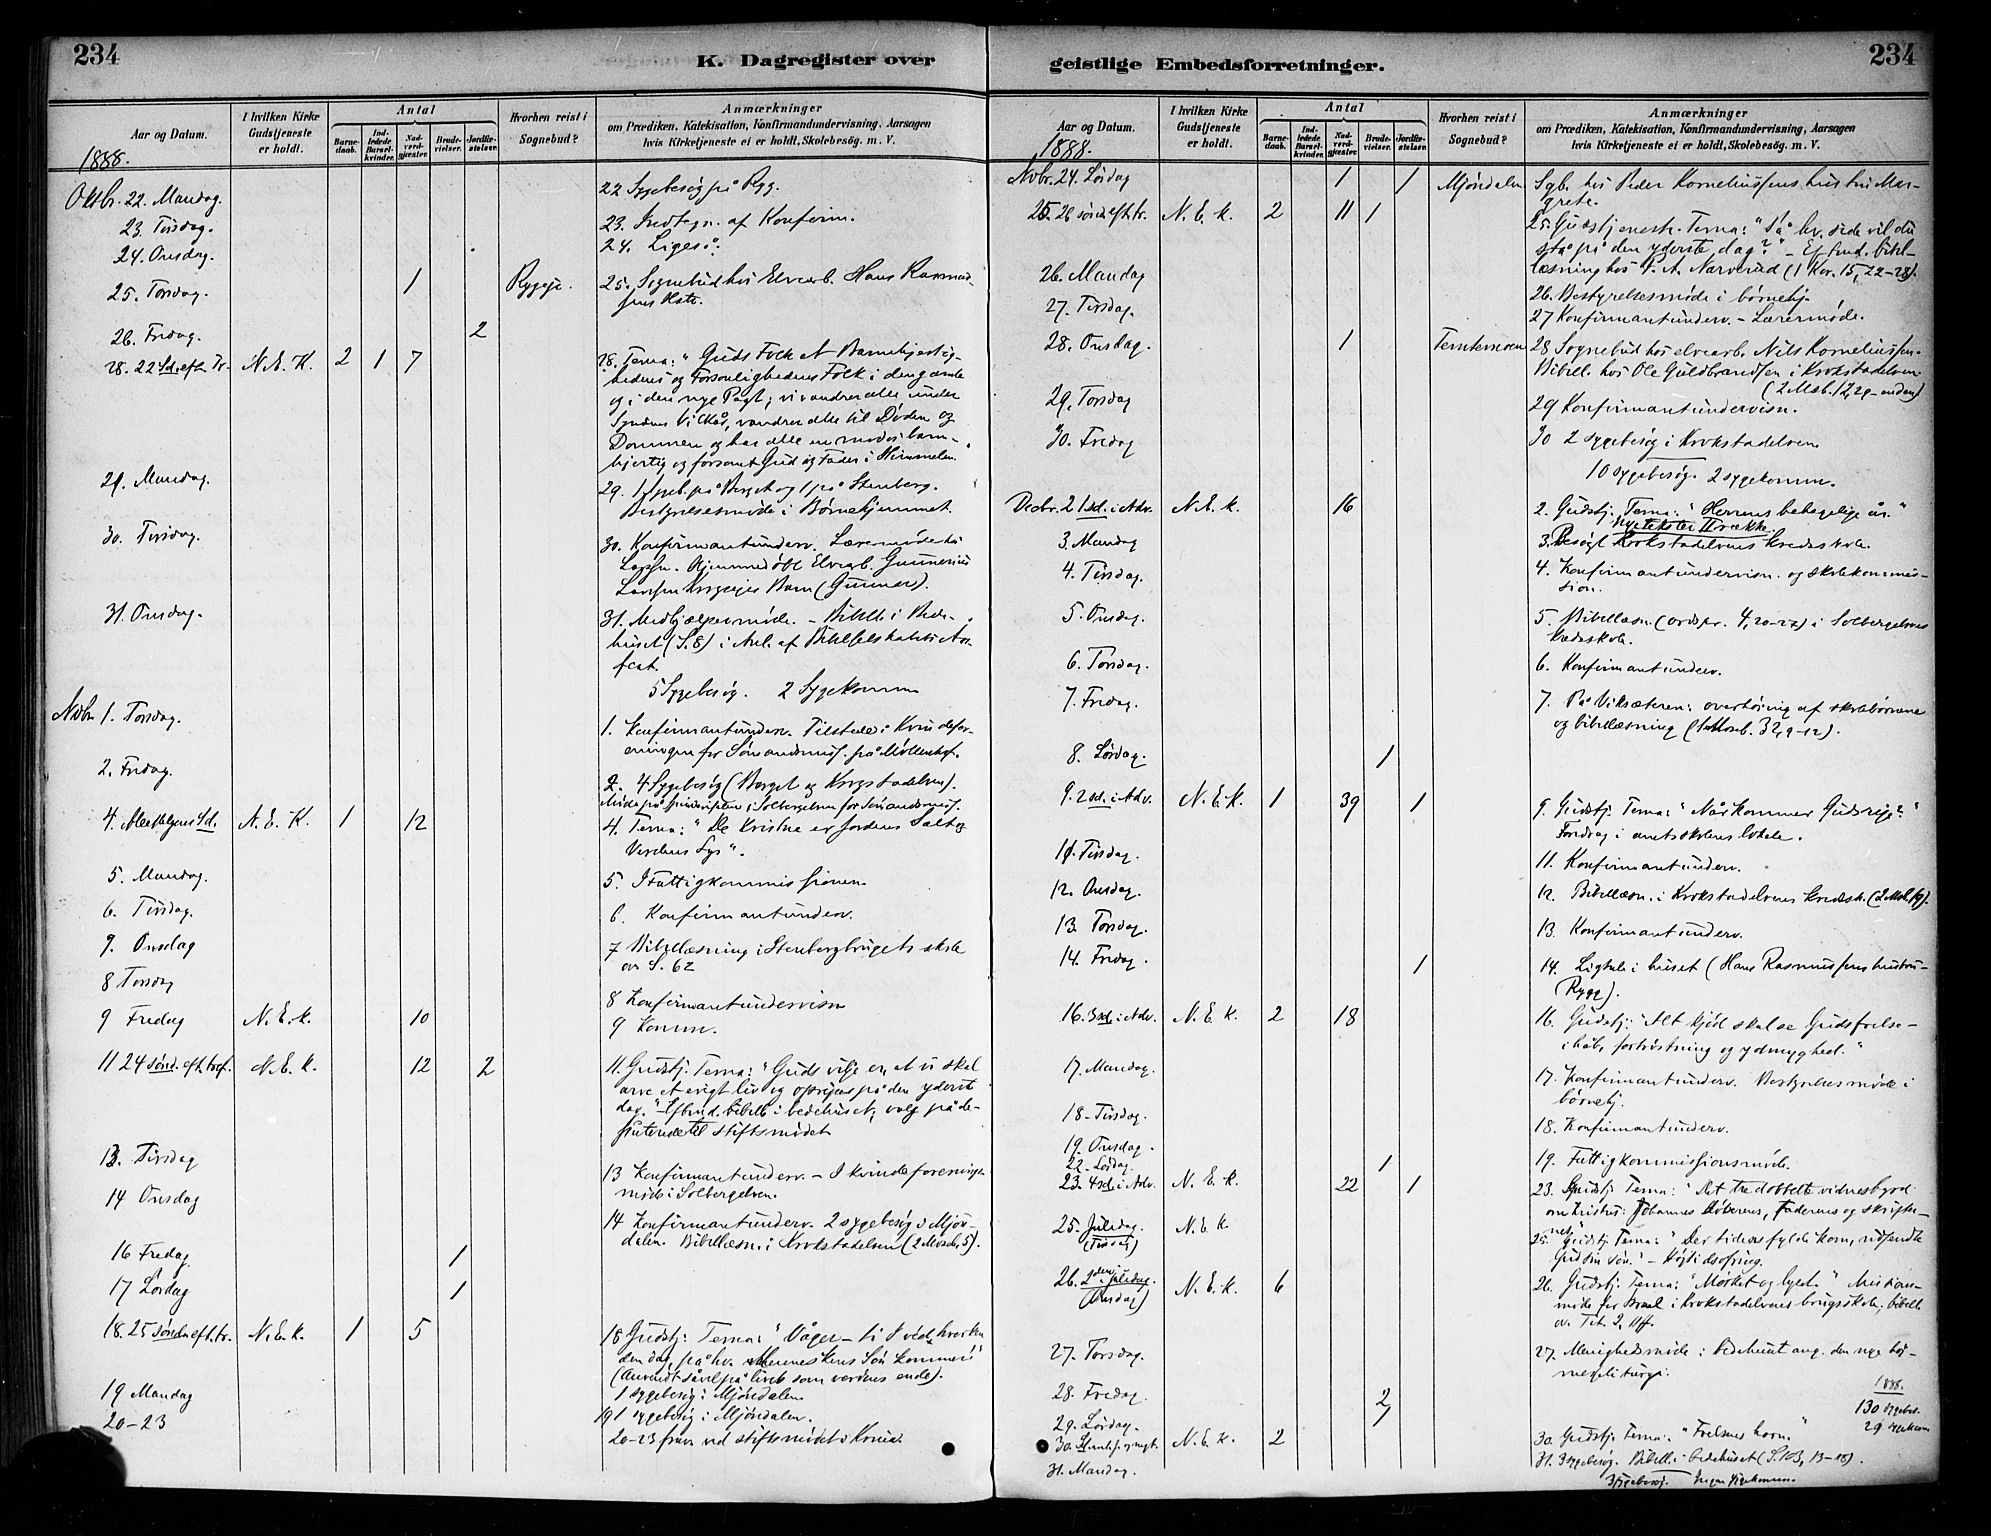 234
K. Dagregister over
Aar og Datum.
I hvilken Kirke Gudstjeneste er holdt.
Antal
Barnedaab.
Indledede Barselkvinder.
Nadverdgjæster.
Brudevielser.
Jordfæstelser.
Hvorhen reist i Sognebud?
Anmærkninger
om Prædiken, Katekisation, Konfirmandundervisning, Aarsagen
hvis Kirketjeneste ei er holdt, Skolebesøg. m. V.
1888.
Oktbr. 22. Mandag.
22 Sygebesøg på Rygg.
23. Tirsdag.
23. Indtagn. af Konfirm.
24. Onsdag.
24. Ligeså.
25. Torsdag. 1
25. Sognebud hos Elvearb. Hans Rasmus-
26. Fredag. 2
28. 22 Sd. eft. Tr. N. E. K. 2 1 7
28. Tema: "Guds Folk et Barmhjertig-
hedens og Forsonlighedens Folk i den gamle
og i den nye Pagt; vi vandrer alle under
Syndens Vilkår, vandrer alle til Døden og
Dommen og har alle en moderbarm-
hjertig og forsonet Gud og Fader i Himmelen.
29. Mandag.
29. 1 Sygeb. på Berget og 1 på Stenberg.
Bestyrelsesmøde i Børnehjemmet.
30. Tirsdag.
30. Konfirmantunderv. Læremøde hos
Larsen. Hjemmedøbt Elvearb. Gunnerius
Larsen Krogsejes Barn (Gunnar).
31. Onsdag.
31. Medhjælpermøde. – Bibell. i Bede-
huset (S. 8) i Anl. af Bibelselskabets Års-
fest.
5 Sygebesøg. 2 Sygekomm
Novbr 1. Torsdag.
1. Konfirmantunderv. Tilstede i Kvindefor-
eningen for Sømandsmis. på Møllenhof.
2. Fredag.
2. 4 Sygebesøg (Berget og Krogstadelven).
4. Allehelgens Sd. N. E. K. 1 12
4. Tema: "De Kristne er Jordens Salt og
Verdens Lys".
5. Mandag.
5. I Fattigkommissionen.
6. Tirsdag.
6. Konfirmantunderv.
9. Onsdag
7 Bibellæsning i Stenbergbrugets skole
ov. S. 62
8 Torsdag
8 Konfirmantundervisn
9 Fredag N. E. k. 10
9 Komm.
11 24 sønd. eft. tref. N. E. K. 12 2
11. Gudstj. Tema: "Guds vilje er, at vi skal
arve et evigt liv og opreises på den yderste
dag." – Eftmd. bibell. i bedehuset, valg på de-
puterede til stiftsmødet
13. Tirsdag
13 Konfirmantunderv. – I kvindeforenings-
møde i Solbergelven.
14 Onsdag
14 Konfirmantunderv. 2 sygebesøg i Mjøn-
dalen. Bibellæsn. i Krokstadelven (2 Moseb. 5).
16 Fredag 1
17 Lørdag 1
18. 25 sønd. eft. tr. N. E. k. 1 5
18 Gudstj. Tema: "Våger – ti I ved hverken
den dag, på hv. Menneskens Søn kommer"
(Anvendt såvel på livets som verdens ende).
1 sygebesøg i Mjøndalen
19 Mandag
19 1 sygebesøg i Mjøndalen.
20–23
20–23 frav. ved stiftsmødet i Kr.nia.
geistlige Embedsforretninger.
234
Aar og Datum.
I hvilken Kirke Gudstjeneste er holdt.
Antal
Barnedaab.
Indledede Barselkvinder.
Nadverdgjæster.
Brudevielser.
Jordfæstelser.
Hvorhen reist i Sognebud?
Anmærkninger
om Prædiken, Katekisation, Konfirmandundervisning, Aarsagen
hvis Kirketjeneste ei er holdt, Skolebesøg. m. V.
1888.
Novbr. 24. Lørdag 1 1 Mjøndalen
Sgb. hos Peder Korneliussens hustru Mar-
grete.
25. 26 sønd. eft. tr. N. E. k. 2 11 1
25. Gudstjeneste. Tema: "På hv. side vil du
stå på den yderste dag?" – Eftmd. bibel-
læsning hos (1 Kor. 15, 22–28).
26. Mandag
26. Bestyrelsesmøde i børnehj.
27. Tirsdag.
27 Konfirmantunderv. – Lærermøde.
28. Onsdag. 1
28 Sognebud hos elvearb. Nils Korneliussen.
Bibell. hos Ole Guldbrandsen i Krokstadelven
(2 Msb. 12, 29–enden)
29. Torsdag
29 Konfirmantundervisn.
30. Fredag
30 2 sygebesøg i Krokstadelven
10 sygebesøg. 2 sygekomm.
Decbr. 2 1 sd. i Adv. N. E. k. 16
2. Gudstj. Tema: "Herrens behagelige år."
nye tekster II række.
3. Mandag
3. Besøgt Krokstadelvens kredsskole.
4. Tirsdag.
4. Konfirmantundervisn. og skolekommis-
sion.
5. Onsdag.
5. Bibellæsn. (ordspr. 4, 20–27) i Solbergelvens
kredsskole.
6. Torsdag.
6. Konfirmantunderv.
7. Fredag.
7. På Viksæteren: overhøring af skolebørnene
og bibellæsning (1 Moseb. 32, 9–12).
8. Lørdag. 1
9. 2 sd. i Adv. N. E. K. 1 39 1
9. Gudstj. Tema: "Når kommer Guds rige?"
Foredrag i amtsskolens lokale.
11. Tirsdag.
11. Konfirmantunderv.
12. Onsdag.
12. Bibellæsn. i Krokstadelvens kredssk. (2 Mos. 19).
13. Torsdag.
13. Konfirmantunderv.
14. Fredag. 1
14. Ligtale i huset (Hans Rasmussens hustru –
Rygg).
16. 3 sd. i Adv. N. E. K. 2 18
16. Gudstj: "Alt kjød skal se Guds frelse –
i håb, fortrøstning og ydmyghed."
17. Mandag
17. Konfirmantunderv. Bestyrelsesmøde i
børnehj.
18. Tirsdag.
18. Konfirmantunderv.
19. Onsdag.
19. Fattigkommissionsmøde.
22. Lørdag. 1
23. 4 sd. i Adv. N. E. K. 22 1
23. Gudstj. Tema: "Det tredobbelte vidnesbyrd
om Kristus: Johannes Døberens, Faderens og skrifter-
nes."
25. Juledag. (Tirsdag) N. E. K
25. Gudstj. Tema: "Der tidens fylde kom, udsendte
Gud sin søn." – Højtidsofring.
26. 2den juledag. (Onsdag) N. E. k. 6
26. Gudstj. Tema: "Mørket og lyset." Missions-
møde for Israel i Krokstadelvens brugsskole; bibell.
ov. Tit. 2, 11 ff.
27. Torsdag.
27. Menighedsmøde i bedehuset ang. den nye høj-
messeliturgi.
28. Fredag. 2
1888.
130 sygebes.
29 sygekom
29. Lørdag.
30. S. mel. jul og nyt. N. E. K. 2
30. Gudstj. Tema: "Frelsens horn."
31. Mandag.
31. 3 sygebesøg. Bibell. i bedehuset (S. 103, 13–18).
3 sygebesøg. Ingen sygekomm.